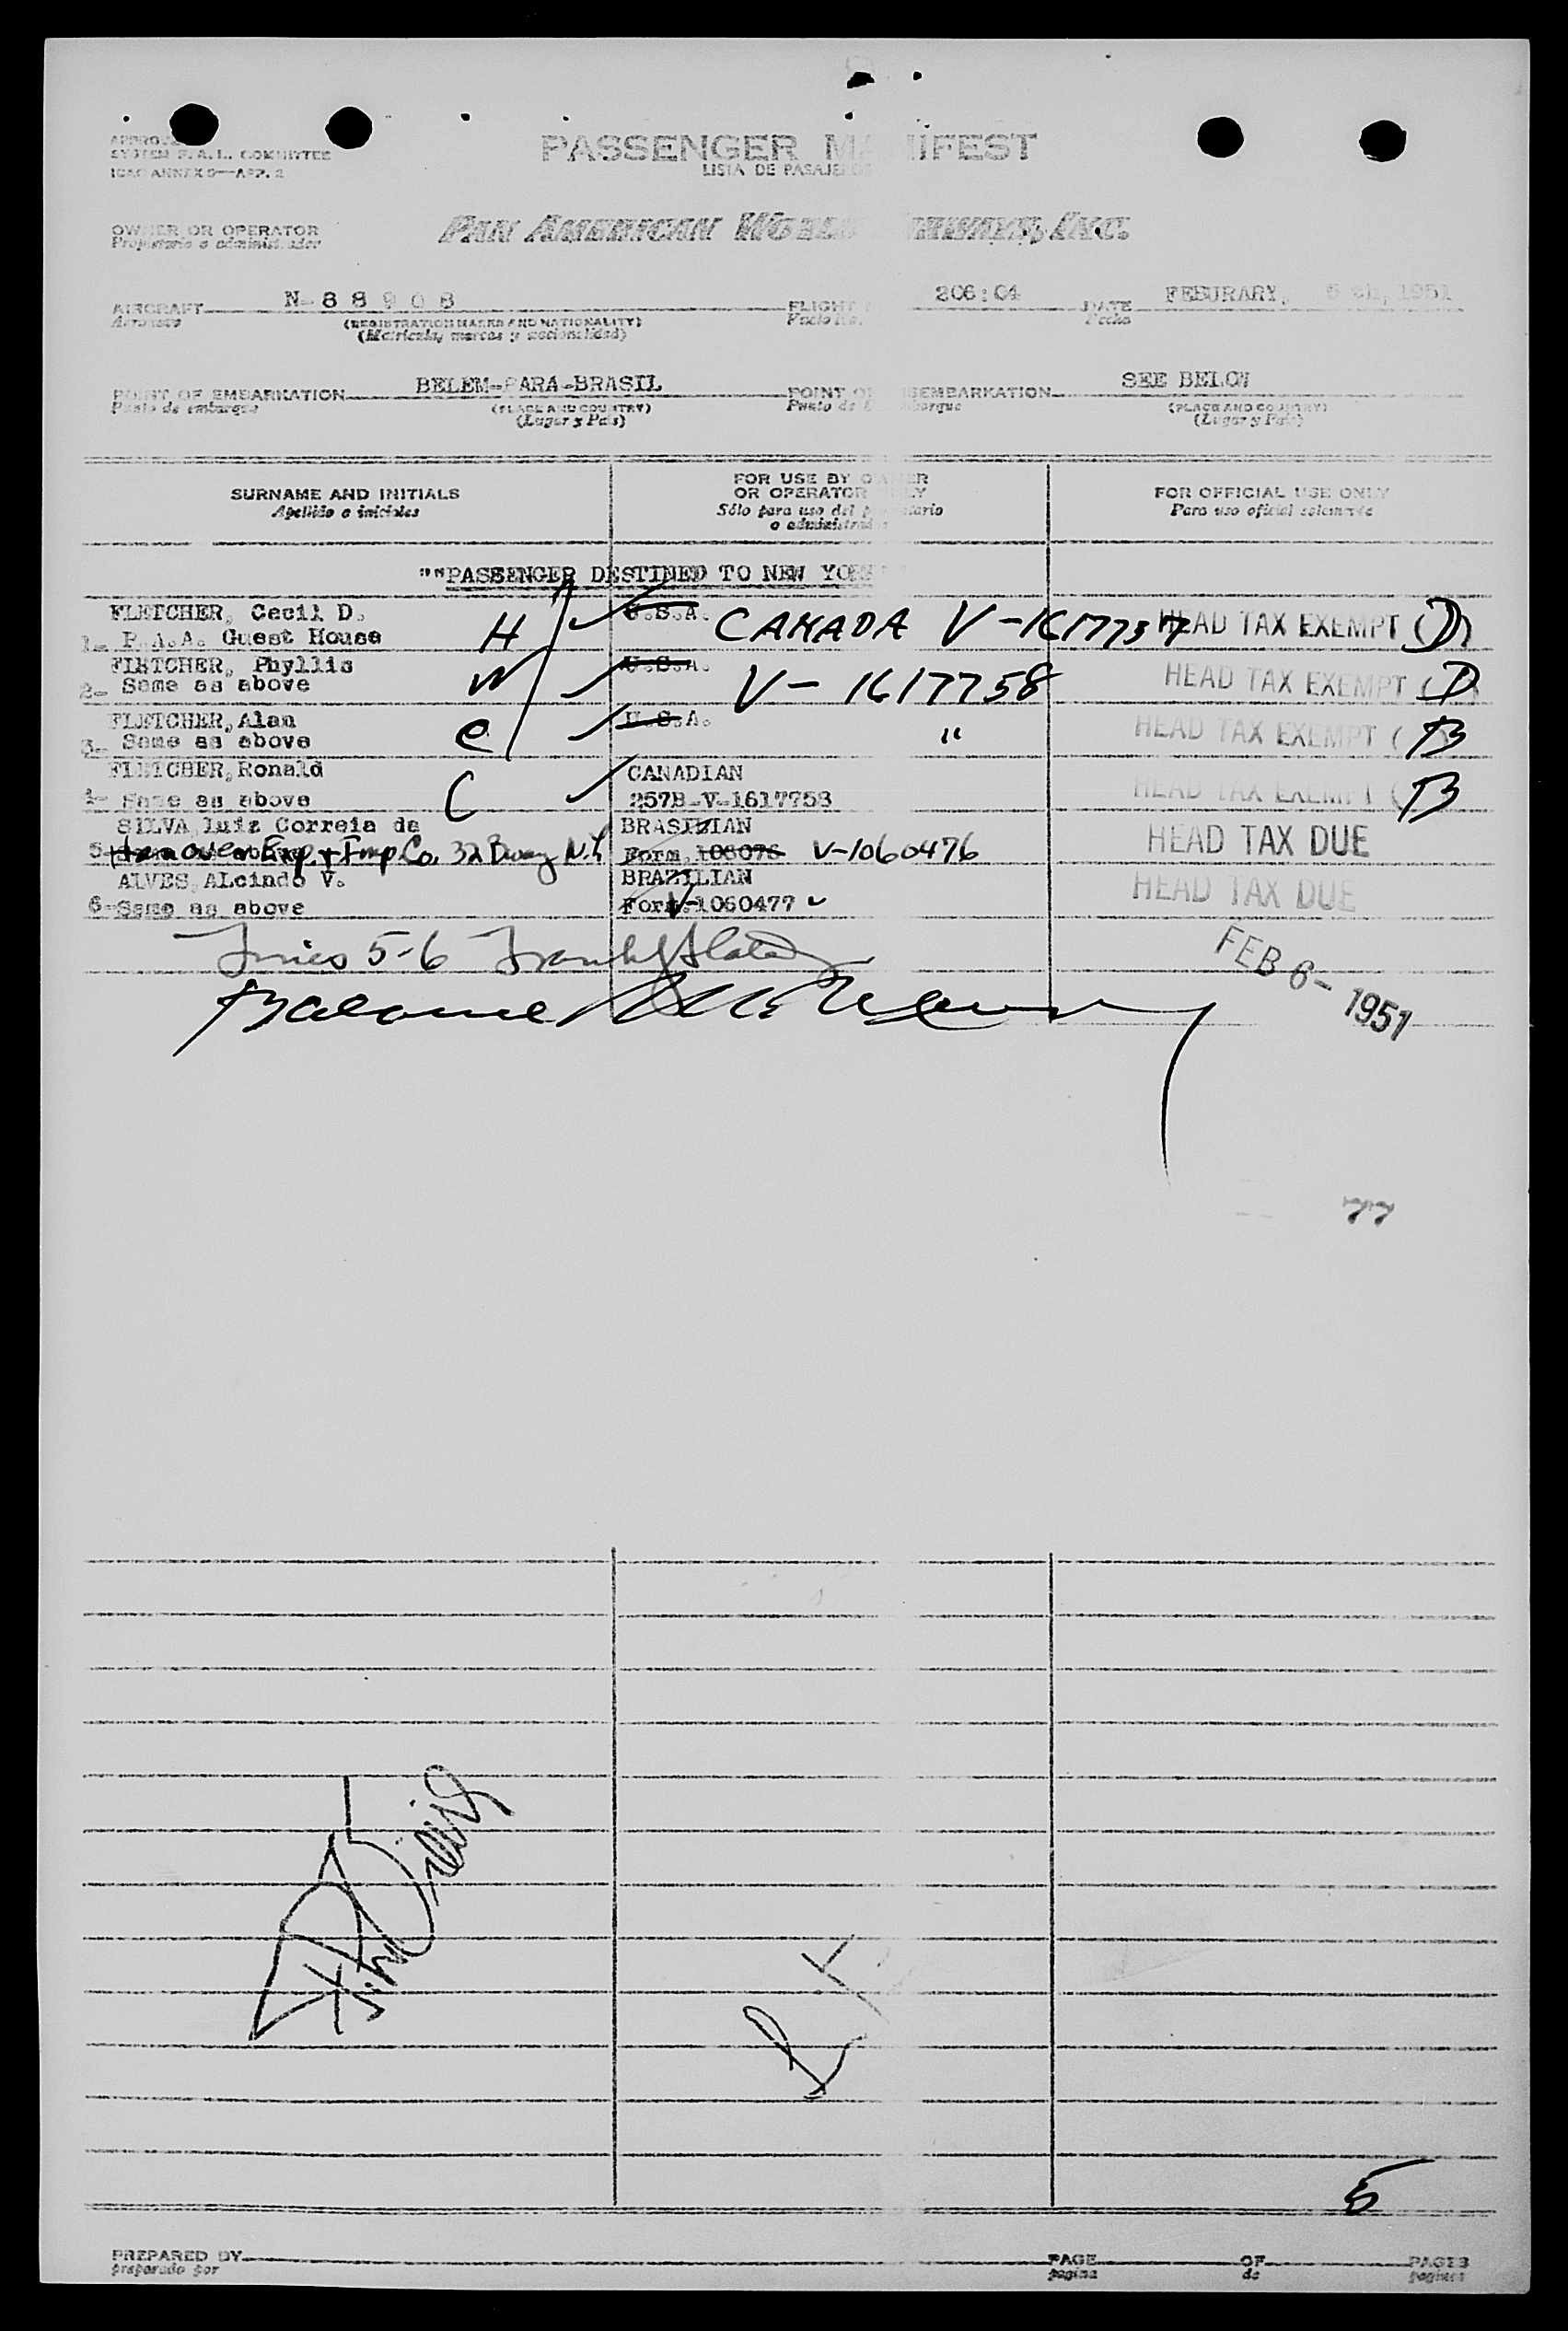 SYSTEM F.A.L. COMMITTEE
ICAO ANNEX 9—APP. 2
PASSENGER M IFEST
LISTA DE PASAJE
OWNER OR OPERATOR
Propietario o administrador
PAN AMERICAN WORLD AIRWAYS, INC.
AIRCRAFT N-88908 FLIGHT 206:04 DATE FEBURARY, 5th, 1951
Aeronave (REGISTRATION MARKS AND NATIONALITY) Vuelo No. Fecha
(Matricula, marcas y nacionalidad)
POINT OF EMBARKATION BELEM-PARA-BRASIL POINT OF DISEMBARKATION SEE BELOW
Punto de embarque (PLACE AND COUNTRY) Punto de (PLACE AND COUNTRY)
(Lugar y País) (Lugar y País)
SURNAME AND INITIALS FOR USE BY OWNER OR OPERATOR ONLY FOR OFFICIAL USE ONLY
Apellido e iniciales Sólo para uso del propietario o administrador Para uso oficial solamente
""PASSENGER DESTINED TO NEW YORK
FLETCHER, Cecil D. H U.S.A. CANADA V-1617757 HEAD TAX EXEMPT (D)
1- P.A.A. Guest House
FLETCHER, Phyllis W U.S.A. V-1617758 HEAD TAX EXEMPT (D
2- Same as above
FLETCHER, Alan C U.S.A. " HEAD TAX EXEMPT ( B
3- Same as above
FLETCHER, Ronald C CANADIAN HEAD TAX EXEMPT ( B
4- Same as above 257B-V-1617758
SILVA, Luiz Correia da BRASILIAN HEAD TAX DUE
5- Hanover Exp & Imp. Co. 32 Bway N.Y. Form. 106076 V-1060476
ALVES, ALcindo V. BRAZILIAN HEAD TAX DUE
6- Same as above Form. V-1060477
Lines 5-6
FEB 6- 1951
77
5
PREPARED BY PAGE OF PAGES
preparado por pagina de paginas